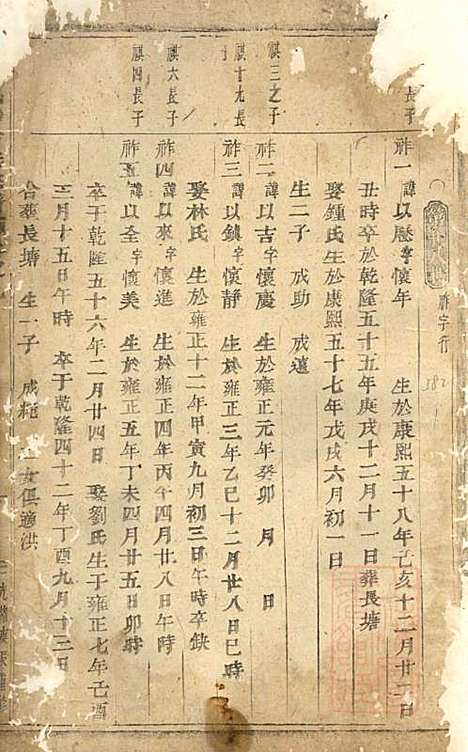 祚字行
長子
祚一 諱以歷字懷年 生於康熙五十八年己亥十二月廿二日
丑時卒於乾隆五十五年庚戌十二月十一日葬長塘
娶鍾氏生於康熙五十七年戊戌六月初一日
生二子 成助 成遠
祺三之子
祚二 諱以吉字懷慶 生於雍正元年癸卯 月 日
祺十九長子
祚三 諱以鎮字懷静 生於雍正三年乙巳十二月廿八日巳時
娶林氏 生於雍正十二年甲寅九月初三日午時卒缺
祺六長子
祚四 諱以來字懷進 生於雍正四年丙午四月廿八日午時
祺四長子
祚五 諱以全字懷美 生於雍正五年丁未四月廿五日卯時
卒于乾隆五十六年二月廿四日 娶劉氏生于雍正七年己酉
三月十五日午時 卒于乾隆四十二年丁酉九月十三日
合葬長塘 生一子 成 女 適洪